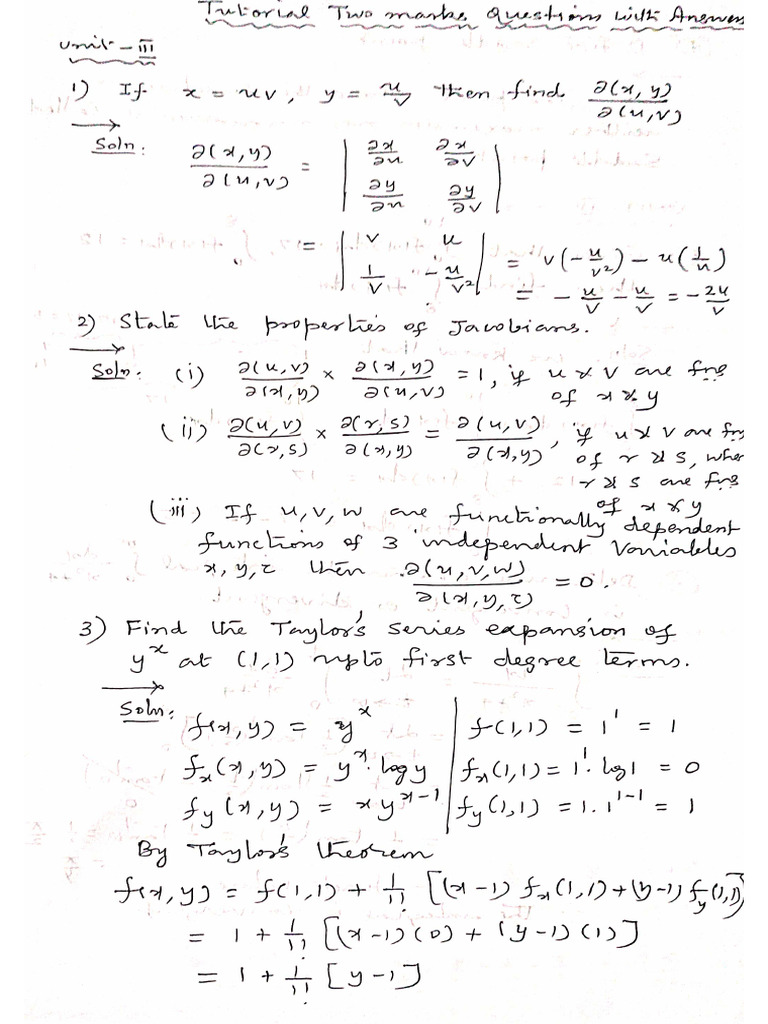 Tutorial Two marks Questions with Answers
Unit - III
1) If x = uv, y = u/v then find ∂(x,y)/∂(u,v)
Soln: ∂(x,y)/∂(u,v) = | ∂x/∂u ∂x/∂v |
| ∂y/∂u ∂y/∂v |
= | v u | = v(-u/v²) - u(1/u)
| 1/v -u/v² | = -u/v - u/v = -2u/v
2) State the properties of Jacobians.
Soln: (i) ∂(u,v)/∂(x,y) × ∂(x,y)/∂(u,v) = 1, if u & v are fns
of x & y
(ii) ∂(u,v)/∂(r,s) × ∂(r,s)/∂(x,y) = ∂(u,v)/∂(x,y), if u & v are fns
of r & s, where
r & s are fns
of x & y
(iii) If u, v, w are functionally dependent
functions of 3 independent variables
x, y, z then ∂(u,v,w)/∂(x,y,z) = 0.
3) Find the Taylor's series expansion of
y^x at (1,1) upto first degree terms.
Soln: f(x,y) = y^x | f(1,1) = 1^1 = 1
fx(x,y) = y^x. log y | fx(1,1) = 1^1. log1 = 0
fy(x,y) = xy^(x-1) | fy(1,1) = 1. 1^(1-1) = 1
By Taylor's theorem
f(x,y) = f(1,1) + 1/1! [(x-1) fx(1,1) + (y-1) fy(1,1)]
= 1 + 1/1! [(x-1)(0) + (y-1)(1)]
= 1 + 1/1! [y-1]